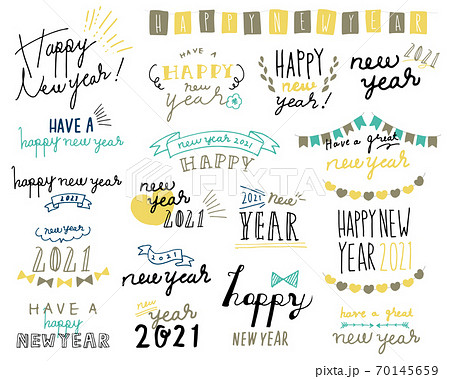 Happy
New year!
HAPPY NEW YEAR
HAVE A
HAPPY
new
year
HAPPY
new
year!
new year
2021
HAVE A
happy new year
new year 2021
HAPPY
Have a great
new year
happy new year
2021
new
year
2021
2021 new
YEAR
HAPPY NEW
YEAR 2021
new year
2021
2021
new year
happy
NEW YEAR
HAVE A
happy
NEW YEAR
new
year
2021
have a great
new year
PIXTA
pixta.jp - 70145659